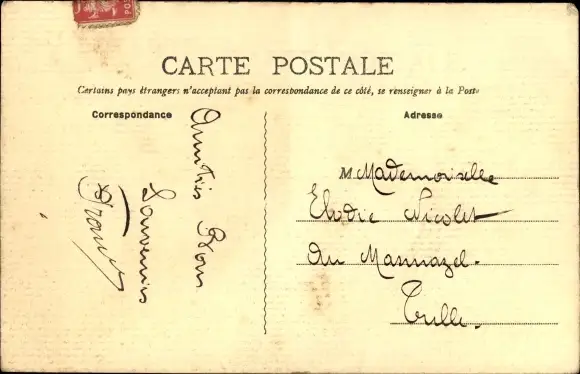 CARTE POSTALE
Certains pays étrangers n'acceptant pas la correspondance de ce côté, se renseigner à la Poste
Correspondance
Adresse
Amitiés Bon
Souvenirs
M Mademoiselle
Elodie Nicolet
au Marmazel.
Tulle.